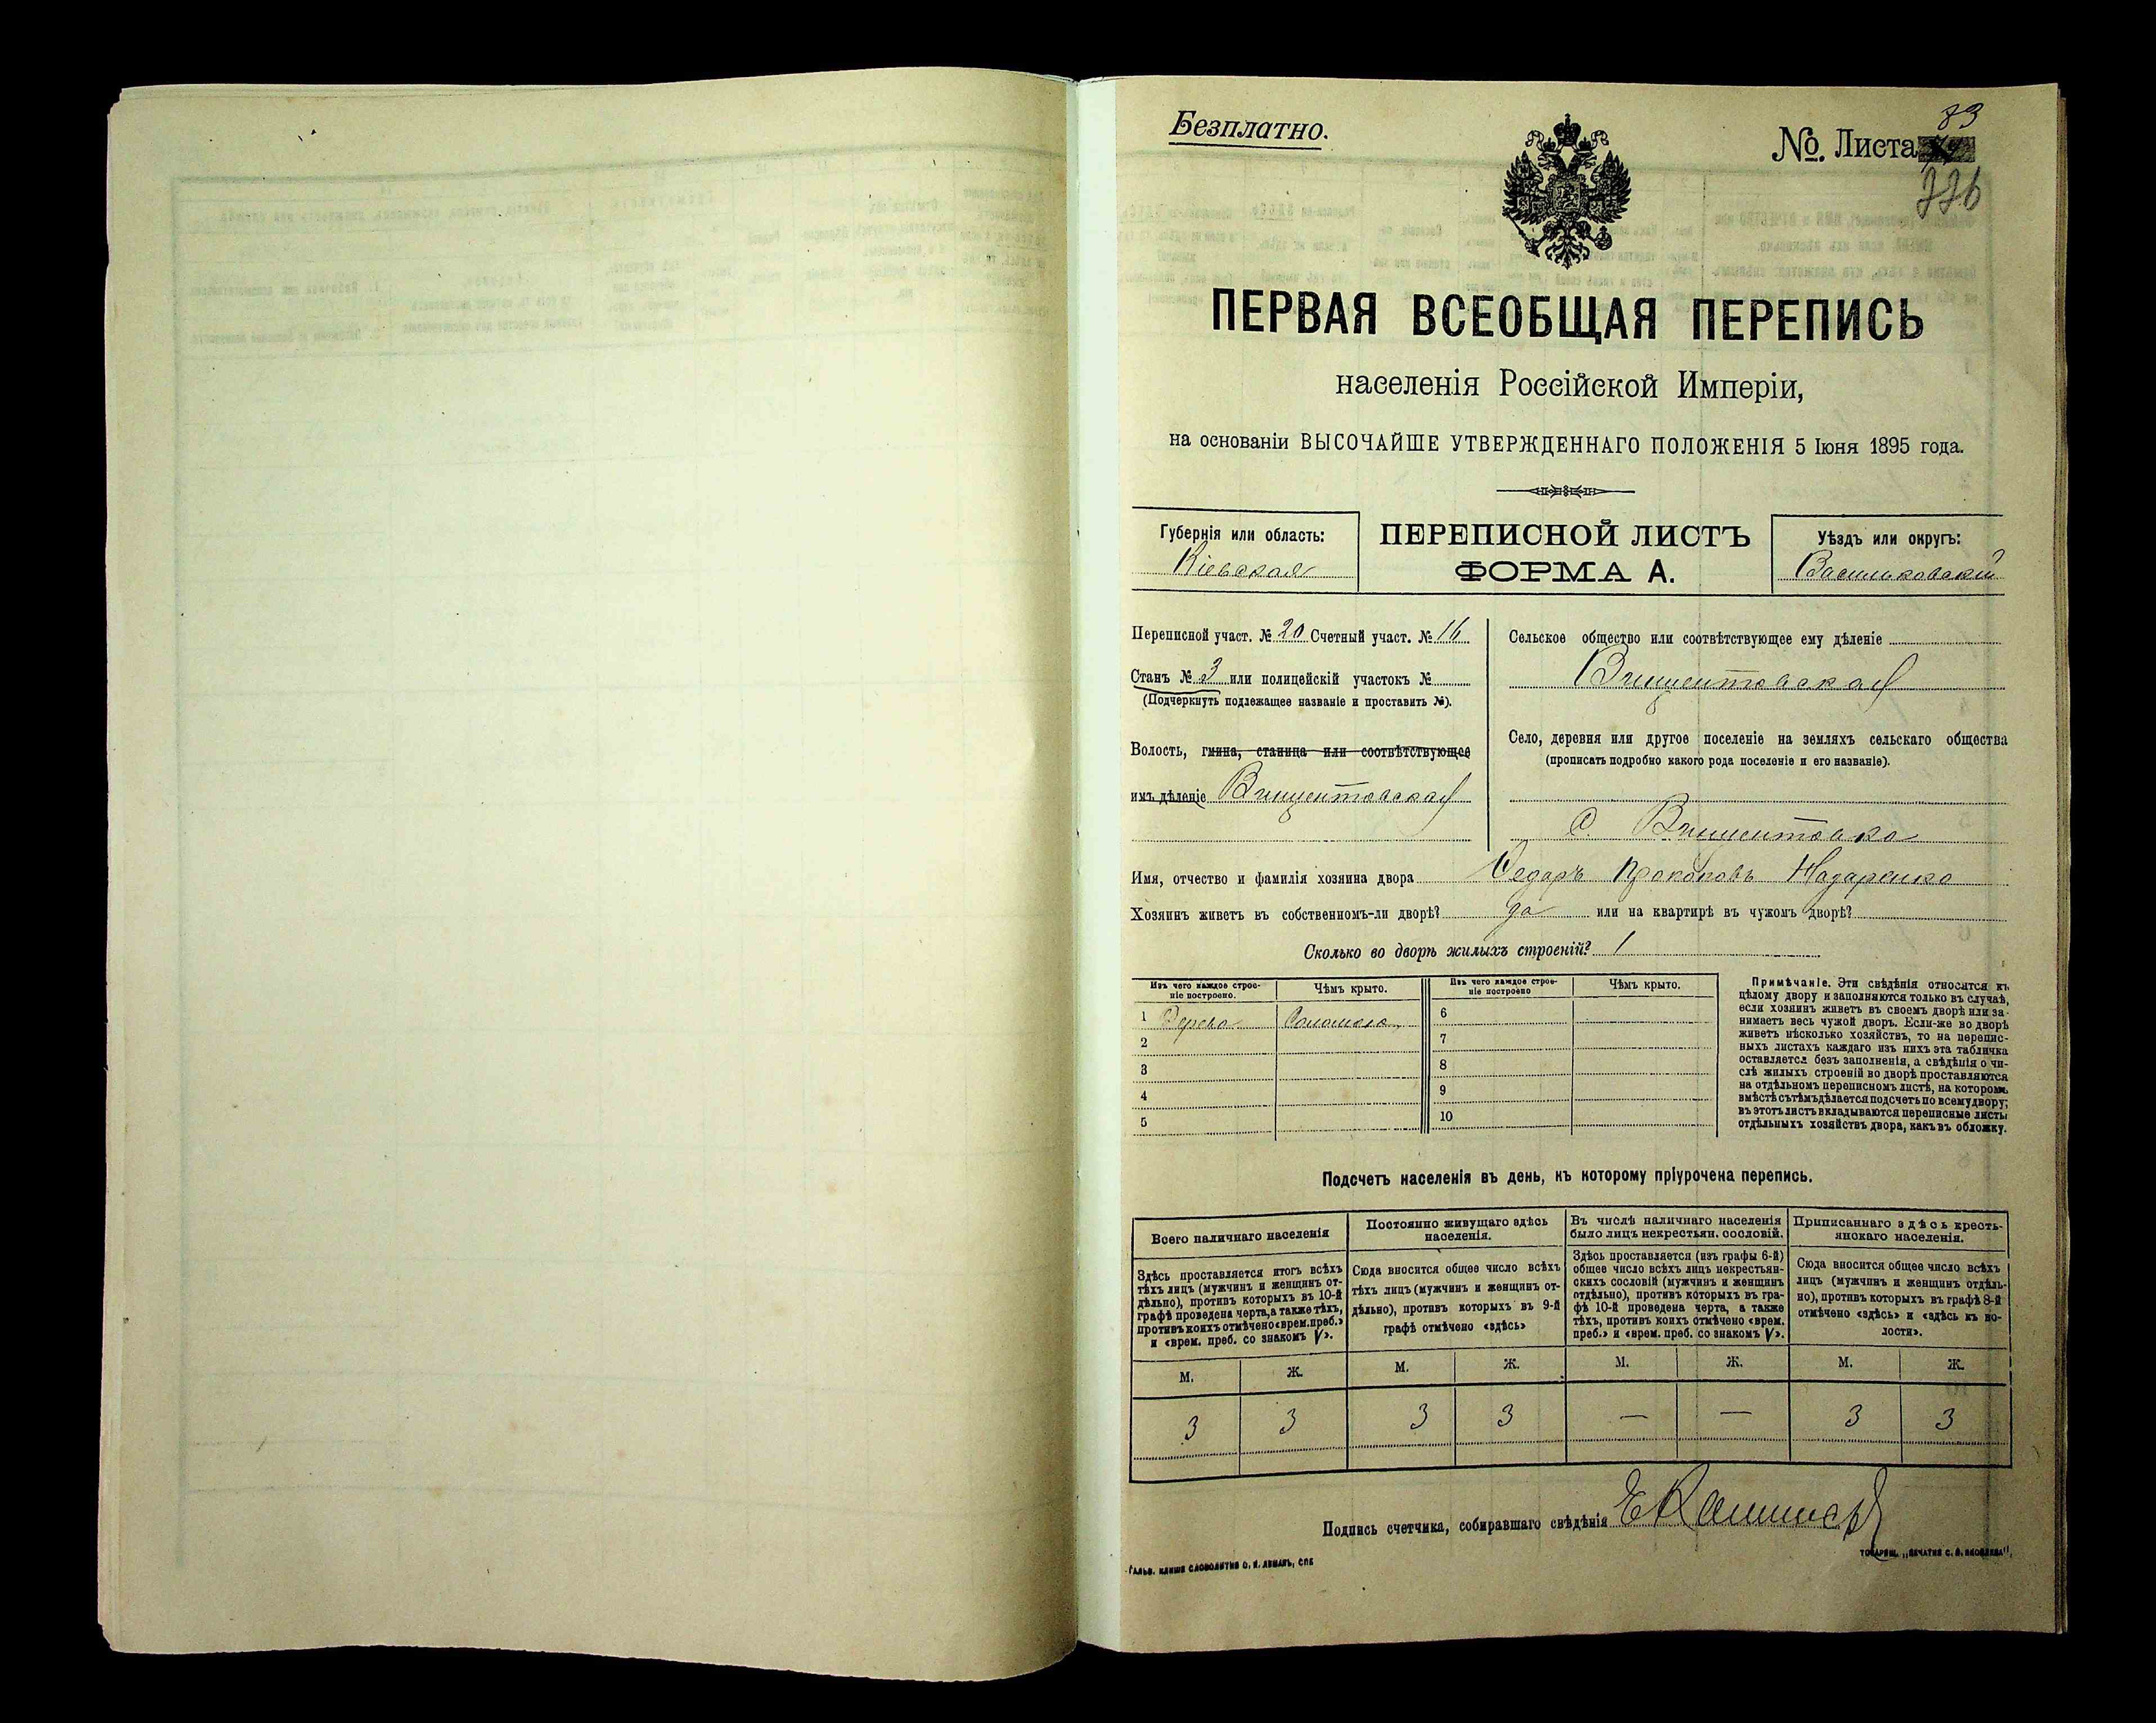 Безплатно.
№. Листа 83
776
ПЕРВАЯ ВСЕОБЩАЯ ПЕРЕПИСЬ
населенія Россійской Имперіи,
на основаніи ВЫСОЧАЙШЕ УТВЕРЖДЕННАГО ПОЛОЖЕНІЯ 5 Іюня 1895 года.
Губернія или область:
Кіевская
ПЕРЕПИСНОЙ ЛИСТЪ
ФОРМА А.
Уѣздъ или округъ:
Васильковскій
Переписной участ. № 20 Счетный участ. № 16
Станъ № 3 или полицейскій участокъ №
(Подчеркнуть подлежащее названіе и проставить №).
Волость, гмина, станица или соотвѣтствующее
имъ дѣленіе Винцентовская
Сельское общество или соотвѣтствующее ему дѣленіе
Винцентовская
Село, деревня или другое поселеніе на земляхъ сельскаго общества
(прописать подробно какого рода поселеніе и его названіе).
С. Винцентовка
Имя, отчество и фамилія хозяина двора Федоръ Прокоповъ Назаренко
Хозяинъ живетъ въ собственномъ-ли дворѣ? да или на квартирѣ въ чужомъ дворѣ?
Сколько во дворѣ жилыхъ строеній? 1
Изъ чего каждое строе-
ніе построено.
Чѣмъ крыто.
Изъ чего каждое строе-
ніе построено
Чѣмъ крыто.
1 Дерева Соломою 6
2 7
3 8
4 9
5 10
Примѣчаніе. Эти свѣдѣнія относятся къ
цѣлому двору и заполняются только въ случаѣ,
если хозяинъ живетъ въ своемъ дворѣ или за-
нимаетъ весь чужой дворъ. Если-же во дворѣ
живетъ нѣсколько хозяйствъ, то на перепис-
ныхъ листахъ каждаго изъ нихъ эта табличка
оставляется безъ заполненія, а свѣдѣнія о чи-
слѣ жилыхъ строеній во дворѣ проставляются
на отдѣльномъ переписномъ листѣ, на которомъ
вмѣстѣ съ тѣмъ дѣлается подсчетъ по всему двору;
въ этотъ листъ вкладываются переписные листы
отдѣльныхъ хозяйствъ двора, какъ въ обложку.
Подсчетъ населенія въ день, къ которому пріурочена перепись.
Всего наличнаго населенія
Здѣсь проставляется итогъ всѣхъ
тѣхъ лицъ (мужчинъ и женщинъ от-
дѣльно), противъ которыхъ въ 10-й
графѣ проведена черта, а также тѣхъ,
противъ коихъ отмѣчено «врем. преб.»
и «врем. преб. со знакомъ V».
Постоянно живущаго здѣсь
населенія.
Сюда вносится общее число всѣхъ
тѣхъ лицъ (мужчинъ и женщинъ от-
дѣльно), противъ которыхъ въ 9-й
графѣ отмѣчено «здѣсь»
Въ числѣ наличнаго населенія
было лицъ некрестьян. сословій.
Здѣсь проставляется (изъ графы 6-й)
общее число всѣхъ лицъ некрестьян-
скихъ сословій (мужчинъ и женщинъ
отдѣльно), противъ которыхъ въ гра-
фѣ 10-й проведена черта, а также
тѣхъ, противъ коихъ отмѣчено «врем.
преб.» и «врем. преб. со знакомъ V».
Приписаннаго здѣсь кресть-
янскаго населенія.
Сюда вносится общее число всѣхъ
лицъ (мужчинъ и женщинъ отдѣль-
но), противъ которыхъ въ графѣ 8-й
отмѣчено «здѣсь» и «здѣсь къ во-
лости».
М. Ж. М. Ж. М. Ж. М. Ж.
3 3 3 3 — — 3 3
Подпись счетчика, собиравшаго свѣдѣнія
Гальв. клише словолитни О. И. Леманъ, СПБ
Товарищ. „Печатня С. П. Яковлева",